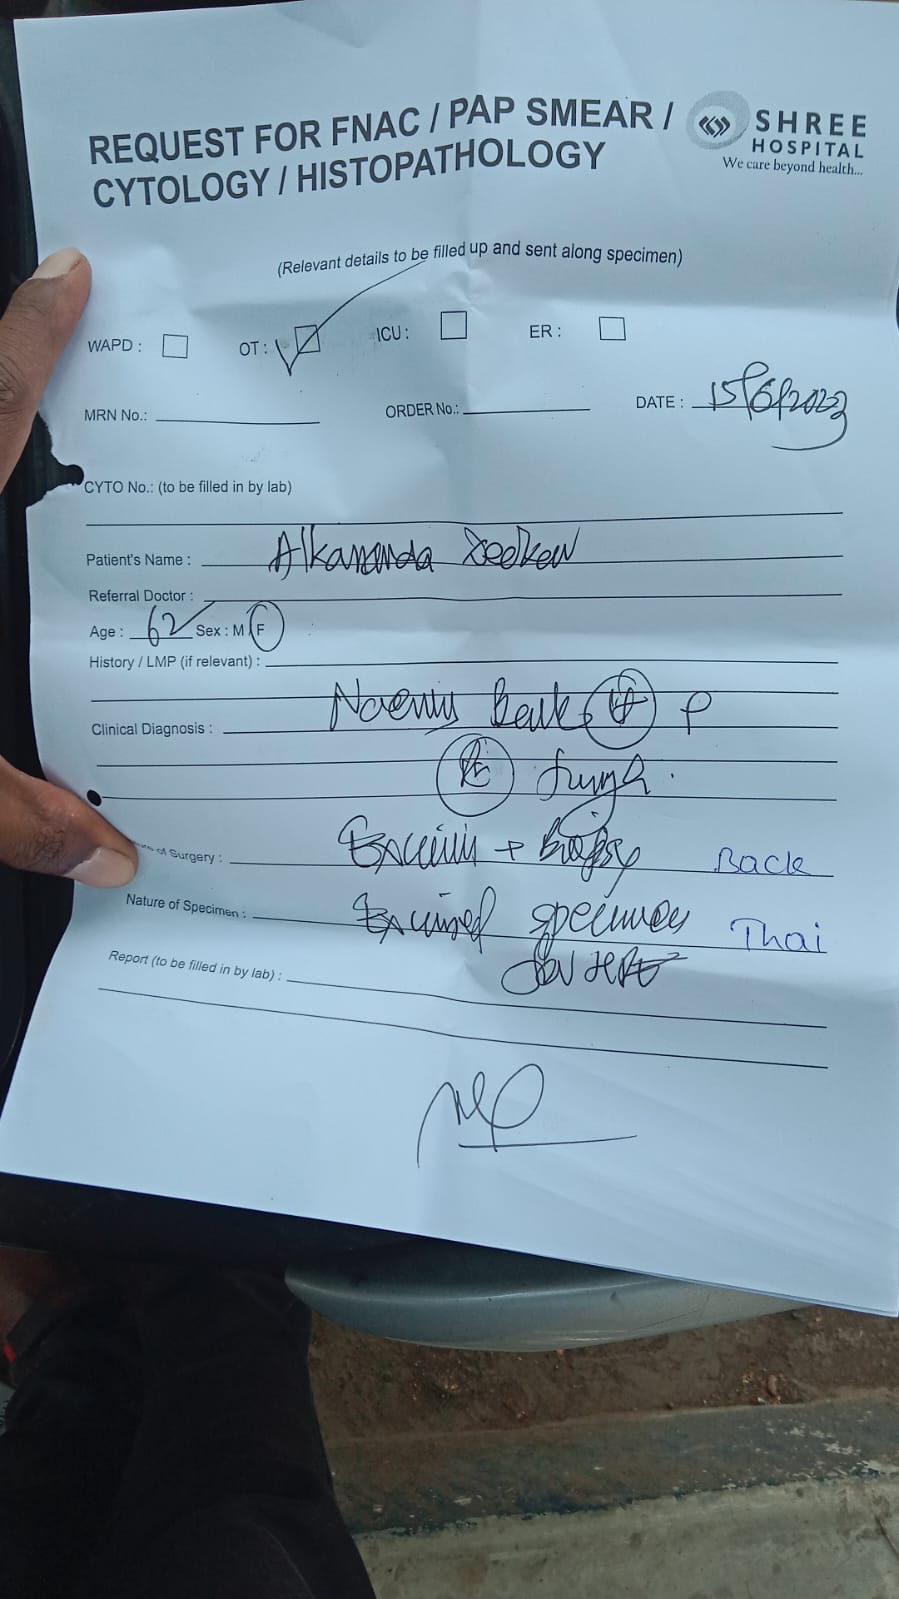 REQUEST FOR FNAC / PAP SMEAR /
CYTOLOGY / HISTOPATHOLOGY
SHREE
HOSPITAL
We care beyond health...
(Relevant details to be filled up and sent along specimen)
WAPD : OT : ICU : ER :
MRN No.: ORDER No.: DATE : 15/6/2023
CYTO No.: (to be filled in by lab)
Patient's Name : Alkananda
Referral Doctor :
Age : 62 Sex : M F
History / LMP (if relevant) :
Clinical Diagnosis :
of Surgery : Excision + Biopsy Back
Nature of Specimen : Excised specimen Thai
for HPE
Report (to be filled in by lab) :